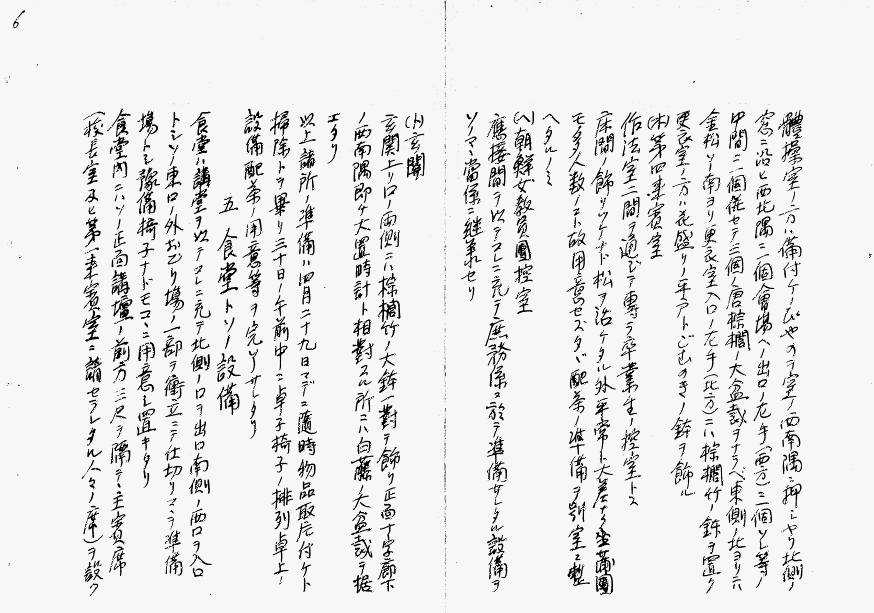 體操室ノ方ハ備付ケノぴやのヲ室ノ西南隅ニ押シヤリ北側ノ
窓ニ沿ヒ西北隅ニ一個會場ヘノ出口ノ左手(西方)ニ一個ソレ等ノ
中間ニ一個併セテ三個ノ唐棕櫚ノ大盆栽ヲナラベ東側ノ北ヨリニハ
金松ソノ南ヨリ更衣室入口ノ左手(北方)ニハ棕櫚竹ノ鉢ヲ置ク
更衣室ノ方ハ花盛リノ平アトごむのきノ鉢ヲ飾ル
(ホ)第四来賓室
作法室二間ヲ通ジテ專ラ卒業生ノ控室トス
床間ノ飾リツケナド松ヲ活ケタル外平常ト大差ナク坐蒲團
モ多人数ノコト故用意セズタヾ配茶ノ準備ヲ別室ニ整
ヘタルノミ
(ヘ)朝鮮女教員團控室
應接間ヲ以テコレニ充テ庶務係ニ於テ準備サレタル設備ヲ
ソノマヽ當係ニ継承セリ
(ト)玄関
玄関上リ口ノ両側ニハ棕櫚竹ノ大鉢一對ヲ飾リ正面十字廊下
ノ西南隅即チ大置時計ト相對スル所ニハ白藤ノ大盆栽ヲ据
エタリ
以上諸所ノ準備ハ四月二十九日マデニ隨時物品取片付ケト
掃除トヲ畢リ三十日ノ午前中ニ卓子椅子ノ排列卓上ノ
設備配茶ノ用意等ヲ完了サレタリ
五 食堂トソノ設備
食堂ハ講堂ヲ以テコレニ充テ北側ノ口ヲ出口南側ノ西口ヲ入口
トシソノ東口ノ外おどり場ノ一部ヲ衝立ニテ仕切リマヅ準備
場トシ豫備椅子ナドモコヽニ用意シ置キタリ
食堂内ニハソノ正面講壇ノ前方三尺ヲ隔テヽ主賓席
(校長室及ビ第一来賓室ニ請セラレタル人々ノ席)ヲ設ク
6